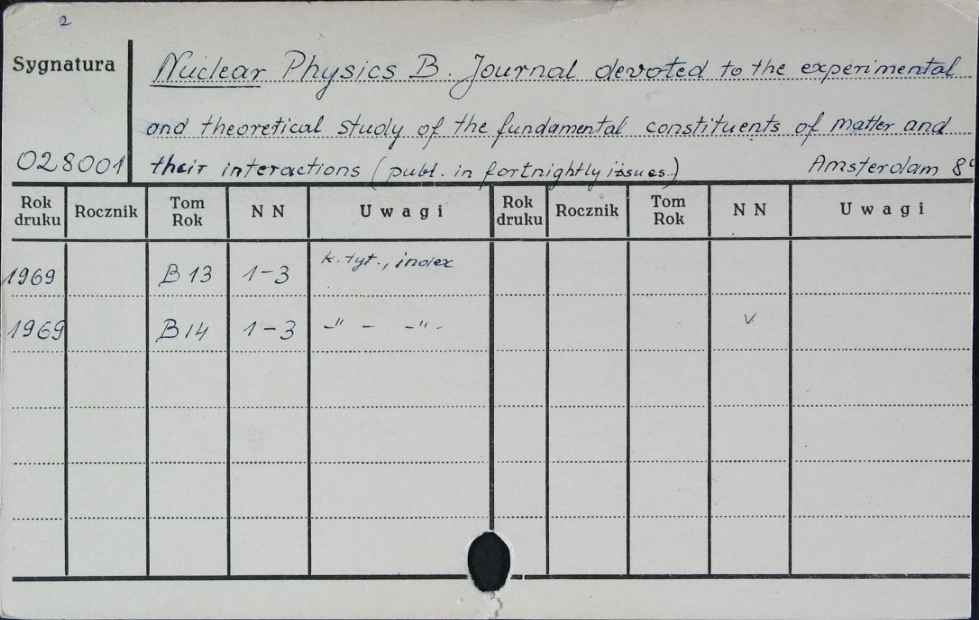 2
Sygnatura
Nuclear Physics B. Journal devoted to the experimental
and theoretical study of the fundamental constituents of matter and
028001 their interactions (publ. in fortnightly issues.) Amsterdam 8°
Rok druku Rocznik Tom Rok N N Uwagi Rok druku Rocznik Tom Rok N N Uwagi
1969 B 13 1-3 k. tyt., index
1969 B 14 1-3 -"- -"- v